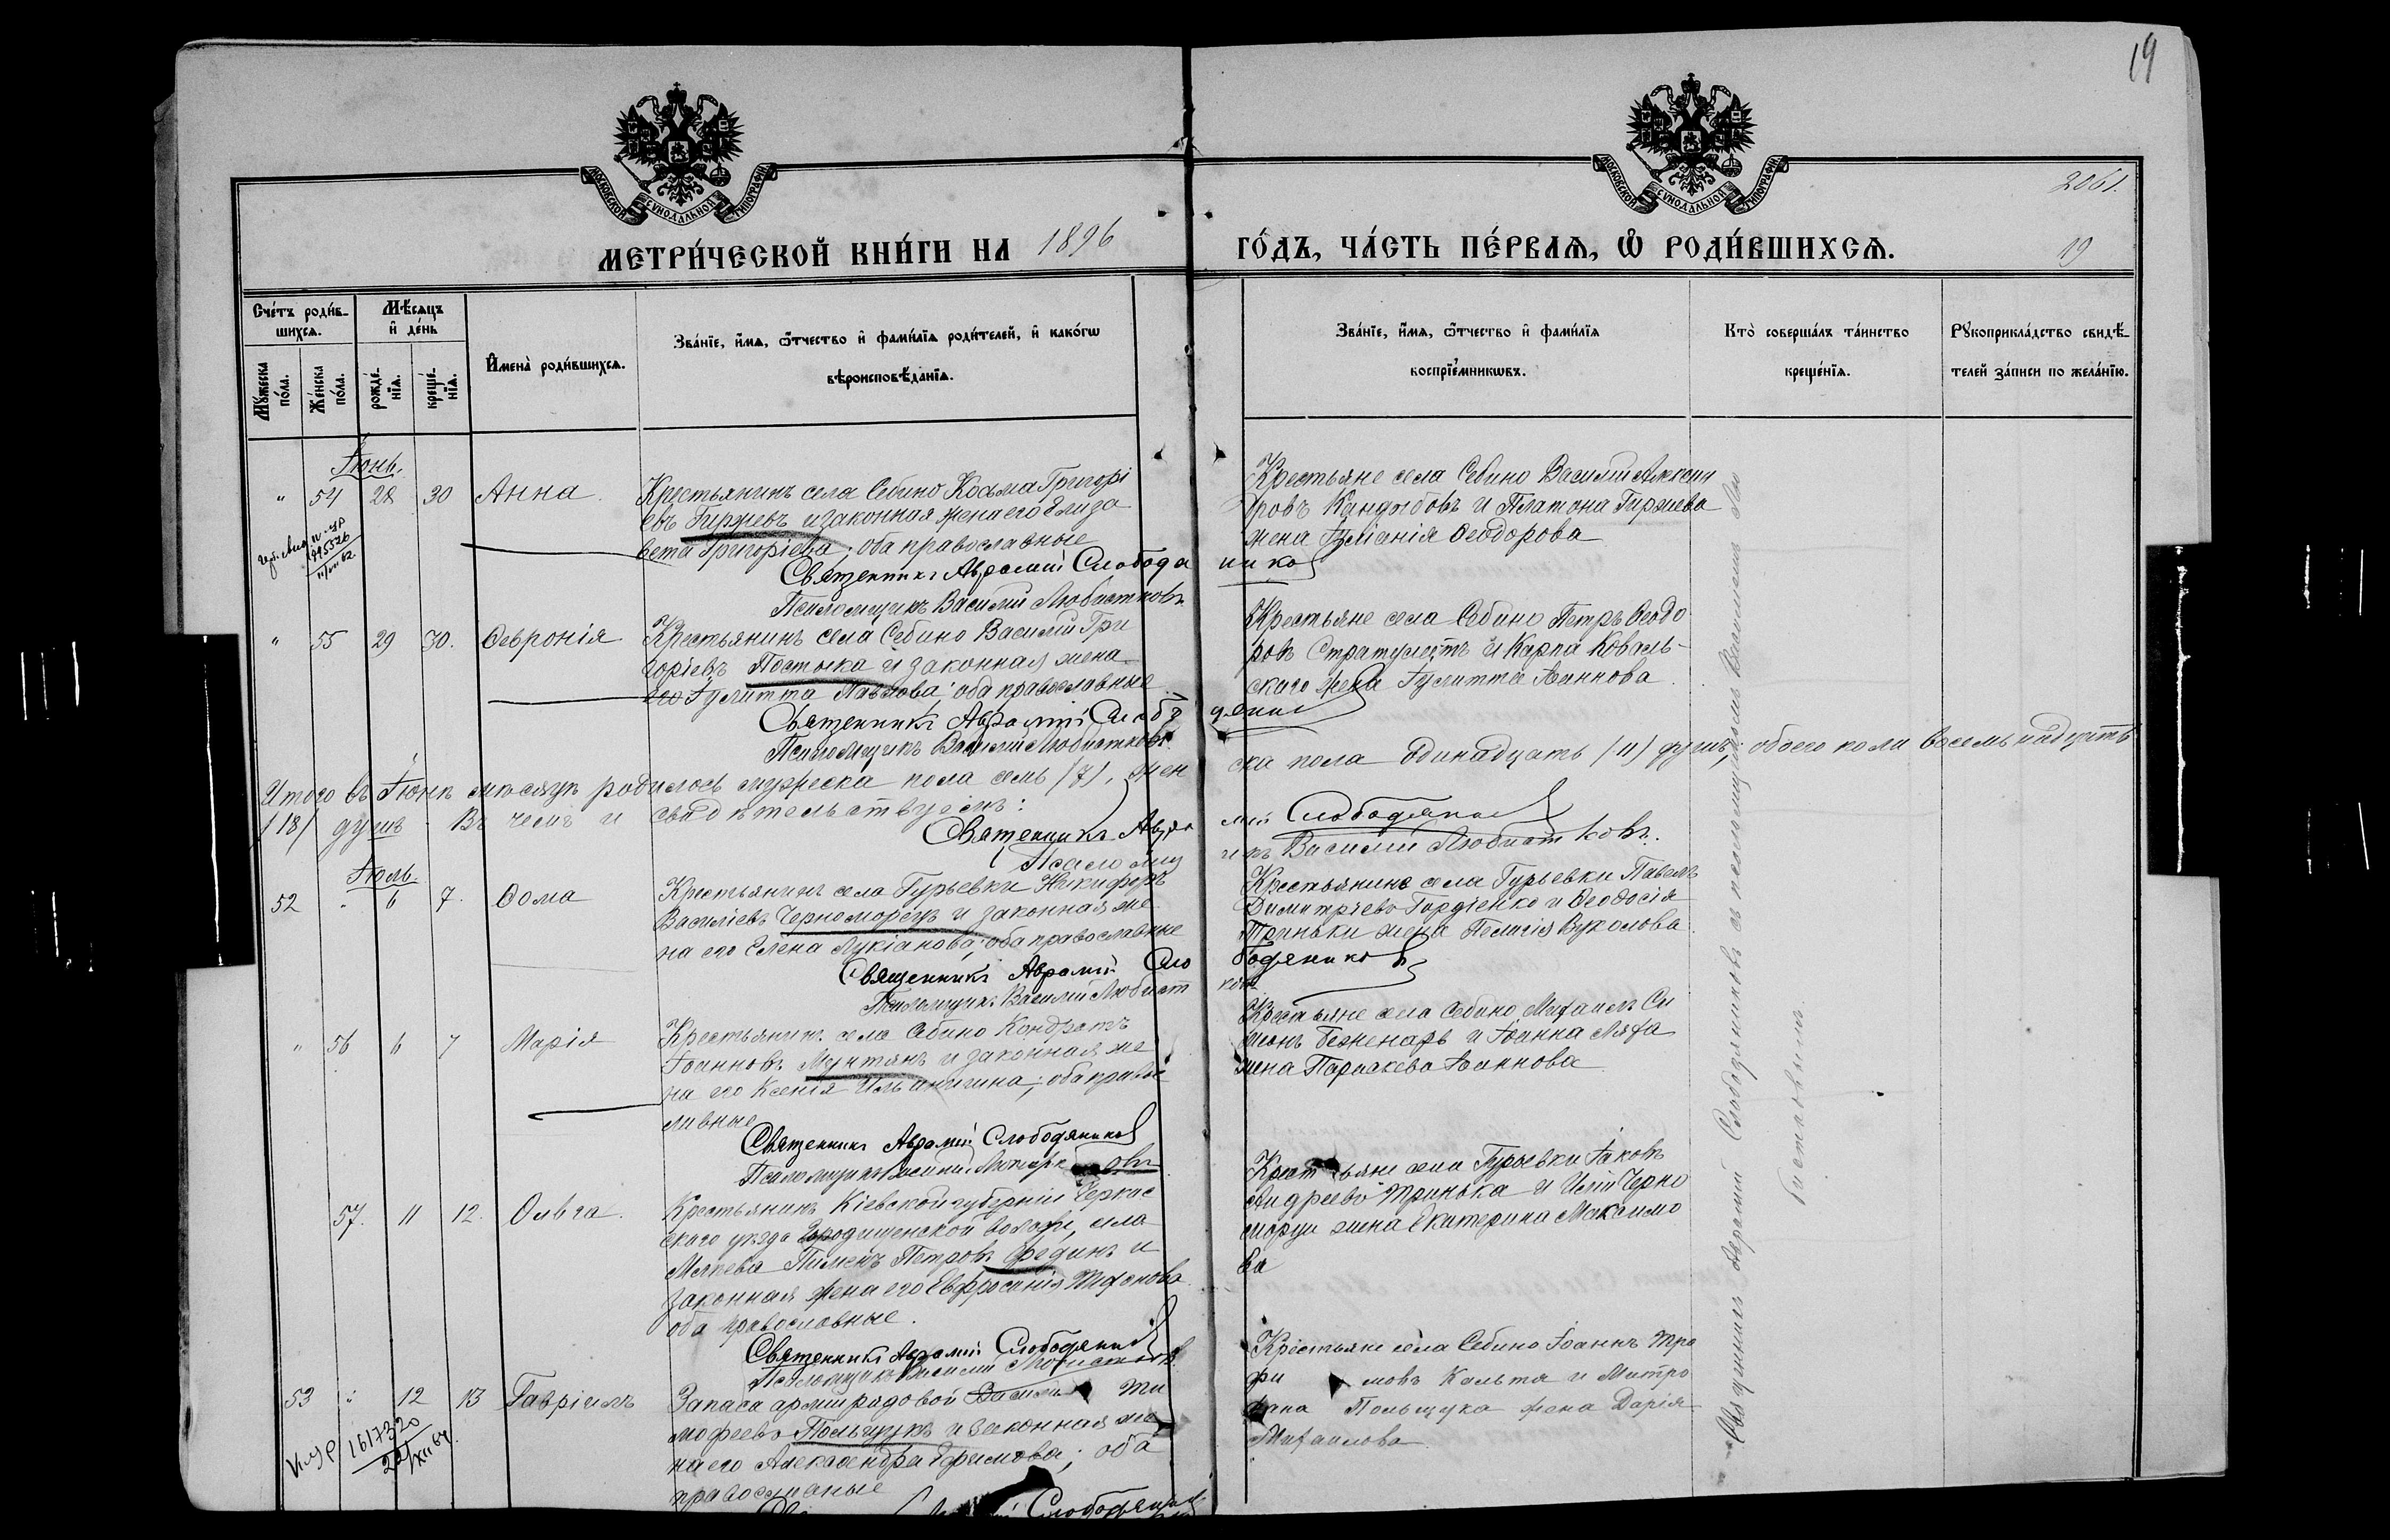 19
МОСКОВСКОЙ СѴНОДАЛЬНОЙ ТИПОГРАФІИ
МОСКОВСКОЙ СѴНОДАЛЬНОЙ ТИПОГРАФІИ
2061.
МЕТРИ́ЧЕСКОЙ КНИ́ГИ НА 1896
ГО́ДЪ, ЧА́СТЬ ПЕ́РВАѦ, Ѡ҆ РОДИ́ВШИХСѦ.
19
Сче́тъ роди́в-
шихсѧ.
Мѣ́сѧцъ
и҆ де́нь
Мꙋ́жеска
по́ла.
Же́нска
по́ла.
рожде́-
нїѧ.
креще́-
нїѧ.
И҆мена̀ роди́вшихсѧ.
Зва́нїе, и҆́мѧ, ѻ҆́тчество и҆ фами́лїѧ роди́телей, и҆ како́гѡ
вѣроисповѣ́данїѧ.
Зва́нїе, и҆́мѧ, ѻ҆́тчество и҆ фами́лїѧ
воспрїе́мникѡвъ.
Кто̀ соверша́лъ та́инство
креще́нїѧ.
Рꙋкоприкла́дство свидѣ́-
телей за́писи по жела́нїю.
Іюнь.
" 54 28 30 Анна.
Крестьянинъ села Себино Косьма Григорі
евъ Гиржевъ и законная жена его Елиза
вета Григоріева; оба православные
Священникъ Аврамій Слободя
никовъ
Псаломщикъ Василій Любистковъ
Крестьяне села Себино Василій Александ
ровъ Кандыбовъ и Платона Гиржева
жена Іуліанія Ѳеодорова
" 55 29 30. Ѳевронія
Крестьянинъ села Себино Василій Гри
горіевъ Постыка и законная жена
его Іулитта Павлова; оба православные
Священникъ Аврамій Слобо
дяник
Псаломщикъ Василій Любистковъ
Крестьяне села Себино Петръ Ѳеодо
ровъ Стратулатъ и Карпа Коваль-
скаго жена Іулитта Іоаннова
Итого въ Іюнѣ мѣсяцѣ родилось мужеска пола семь (7), жен
ска пола одинадцать (11) душъ, обоего пола восемьнадцать
(18) душъ. Въ чемъ и свидѣтельствуемъ:
Священникъ Авра
мій Слободяник
Псаломщ
икъ Василій Любистковъ.
Іюль.
52 " 6 7. Ѳома
Крестьянинъ села Гурьевки Никифоръ
Василіевъ Черноморецъ и законная же
на его Елена Лукіанова; оба православные
Священникъ Аврамій Сло
бодяников
Псаломщикъ Василій Любист
ковъ
Крестьянине села Гурьевки Павелъ
Димитріевъ Гордіенко и Ѳеодосія
Триньки жена Пелагія Вуколова.
" 56 6 7 Марія
Крестьянинъ села Себино Кондратъ
Іоанновъ Мунтянъ и законная же
на его Ксенія; оба право
славные
Священникъ Аврамій Слободяников
Псаломщикъ Василій
Крестьяне села Себино Михаилъ Си
меонъ Беженарь и Іоанна Ляха
жена Параскева Іоаннова
57. 11 12. Ольга.
Крестьянинъ Кіевской губерніи Черкас
скаго уѣзда Городищенской волости, села
Млѣева Пименъ Петровъ Фединъ и
законная жена его Евфросинія
оба православные.
Священникъ Аврамій Слободяник
Псаломщикъ Василій Любистков
Крестьяне села Гурьевки Іаковъ
Андреевъ Тринька и Иліи Черно
морца жена Екатерина Максимо
ва
53 " 12 13 Гавріилъ
Запаса арміи рядовой Ти
мофеевъ Польщукъ и законная же
на его Александра Ефимова; оба
православные
Слободяник
Крестьяне села Себино Іоаннъ Тро
фимовъ Кальтя и Митро
фана Польщука жена Дарія
Михаилова
161732
Священникъ Аврамій Слободяниковъ съ псаломщикомъ Василіемъ Лю
бистковымъ